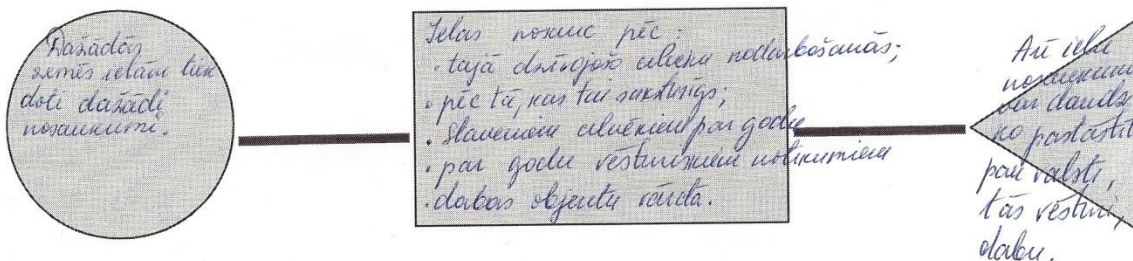 Dažādās
zemēs ielām tiek
doti dažādi
nosaukumi.
Ielas nosauc pēc:
• tajā dzīvojošo cilvēku nodarbošanās;
• pēc tā, kas tai raksturīgs;
• slaveniem cilvēkiem par godu
• par godu vēsturiskiem notikumiem
• dabas objektu vārdā.
Arī ielu
nosaukumi
var daudz
ko pastāstīt
par valsti,
tās vēsturi,
dabu.